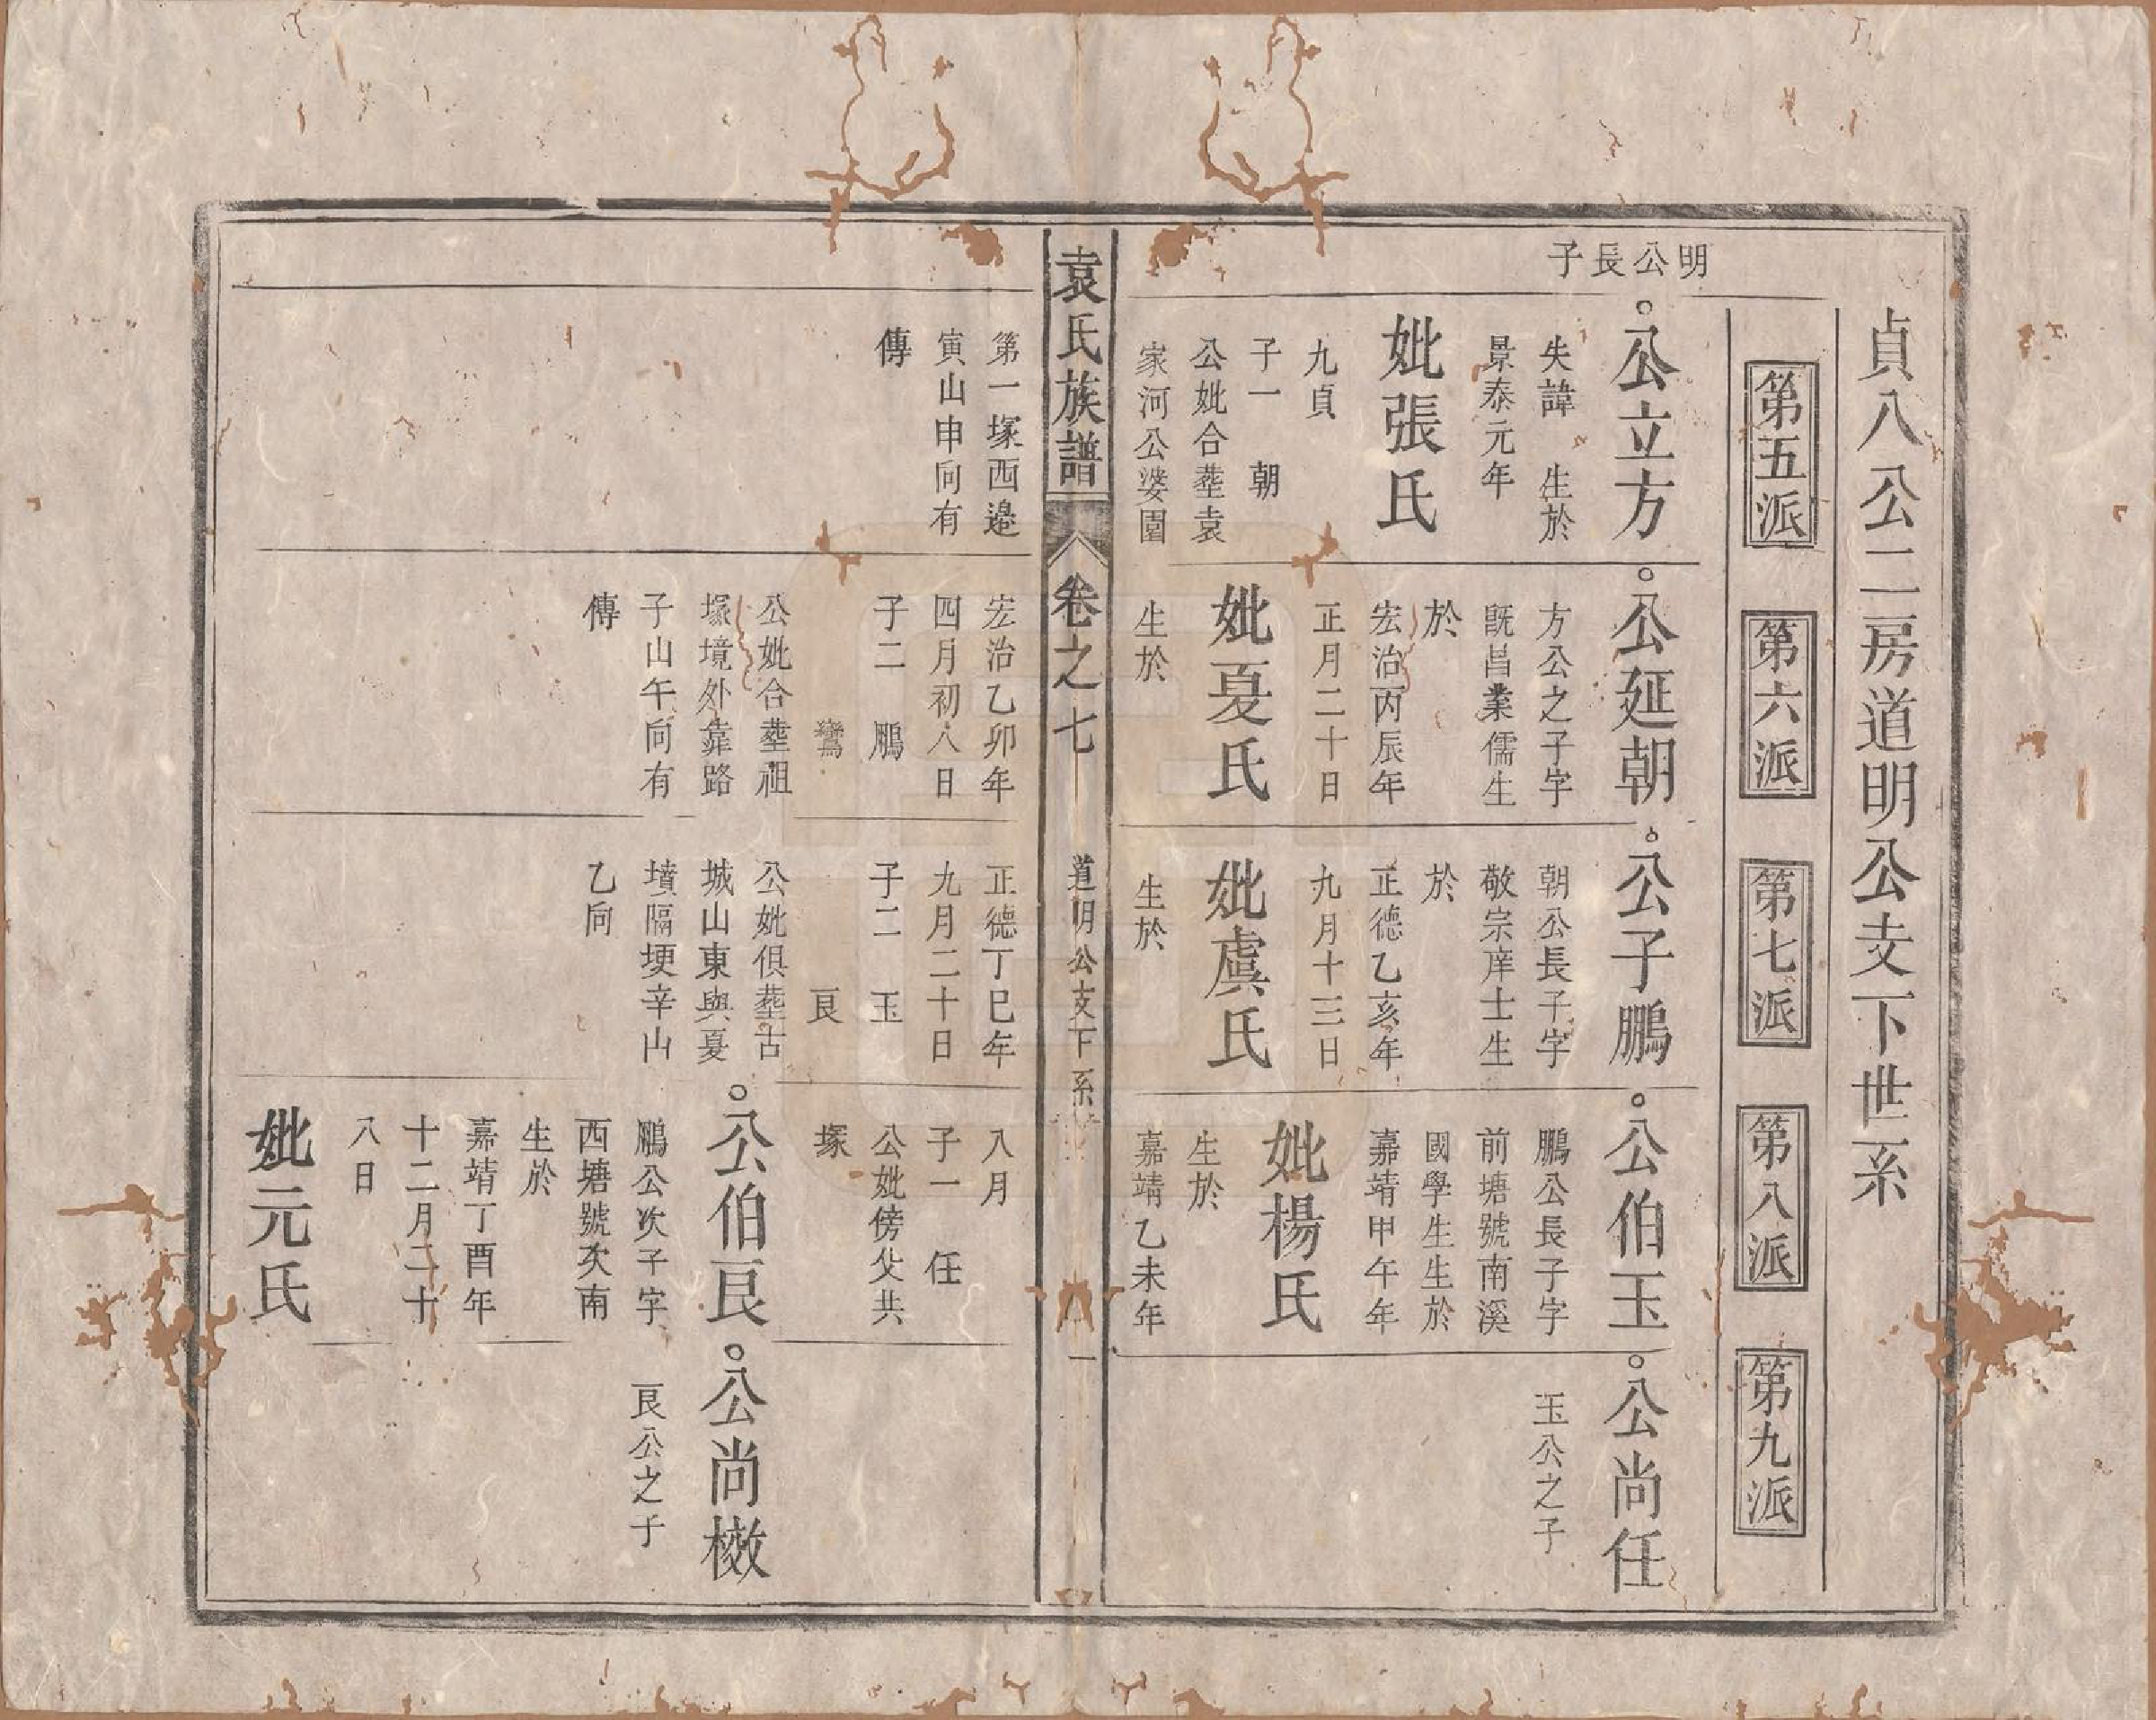 貞八公二房道明公支下世系
第五派
第六派
第七派
第八派
第九派
明公長子
公立方
失諱　生於
景泰元年
妣張氏
九貞
子一　朝
公妣合塟袁
家河公婆園
第一塚西邉
寅山申向有
傳
公延朝
方公之子字
旣昌業儒生
於
宏治丙辰年
正月二十日
妣夏氏
生於
宏治乙卯年
四月初八日
子二　鵬
鸞
公妣合塟祖
塚境外靠路
子山午向有
傳
公子鵬
朝公長子字
敬宗庠士生
於
正德乙亥年
九月十三日
妣虞氏
生於
正德丁巳年
九月二十日
子二　玉
良
公妣俱塟古
城山東與夏
墳隔埂辛山
乙向
公伯玉
鵬公長子字
前塘號南溪
國學生生於
嘉靖甲午年
妣楊氏
生於
嘉靖乙未年
八月
子一　任
公妣傍父共
塚
公伯良
鵬公次子字
西塘號次南
生於
嘉靖丁酉年
十二月二十
八日
妣元氏
公尚任
玉公之子
公尚檄
良公之子
袁氏族譜
卷之七
道明公支下系
一